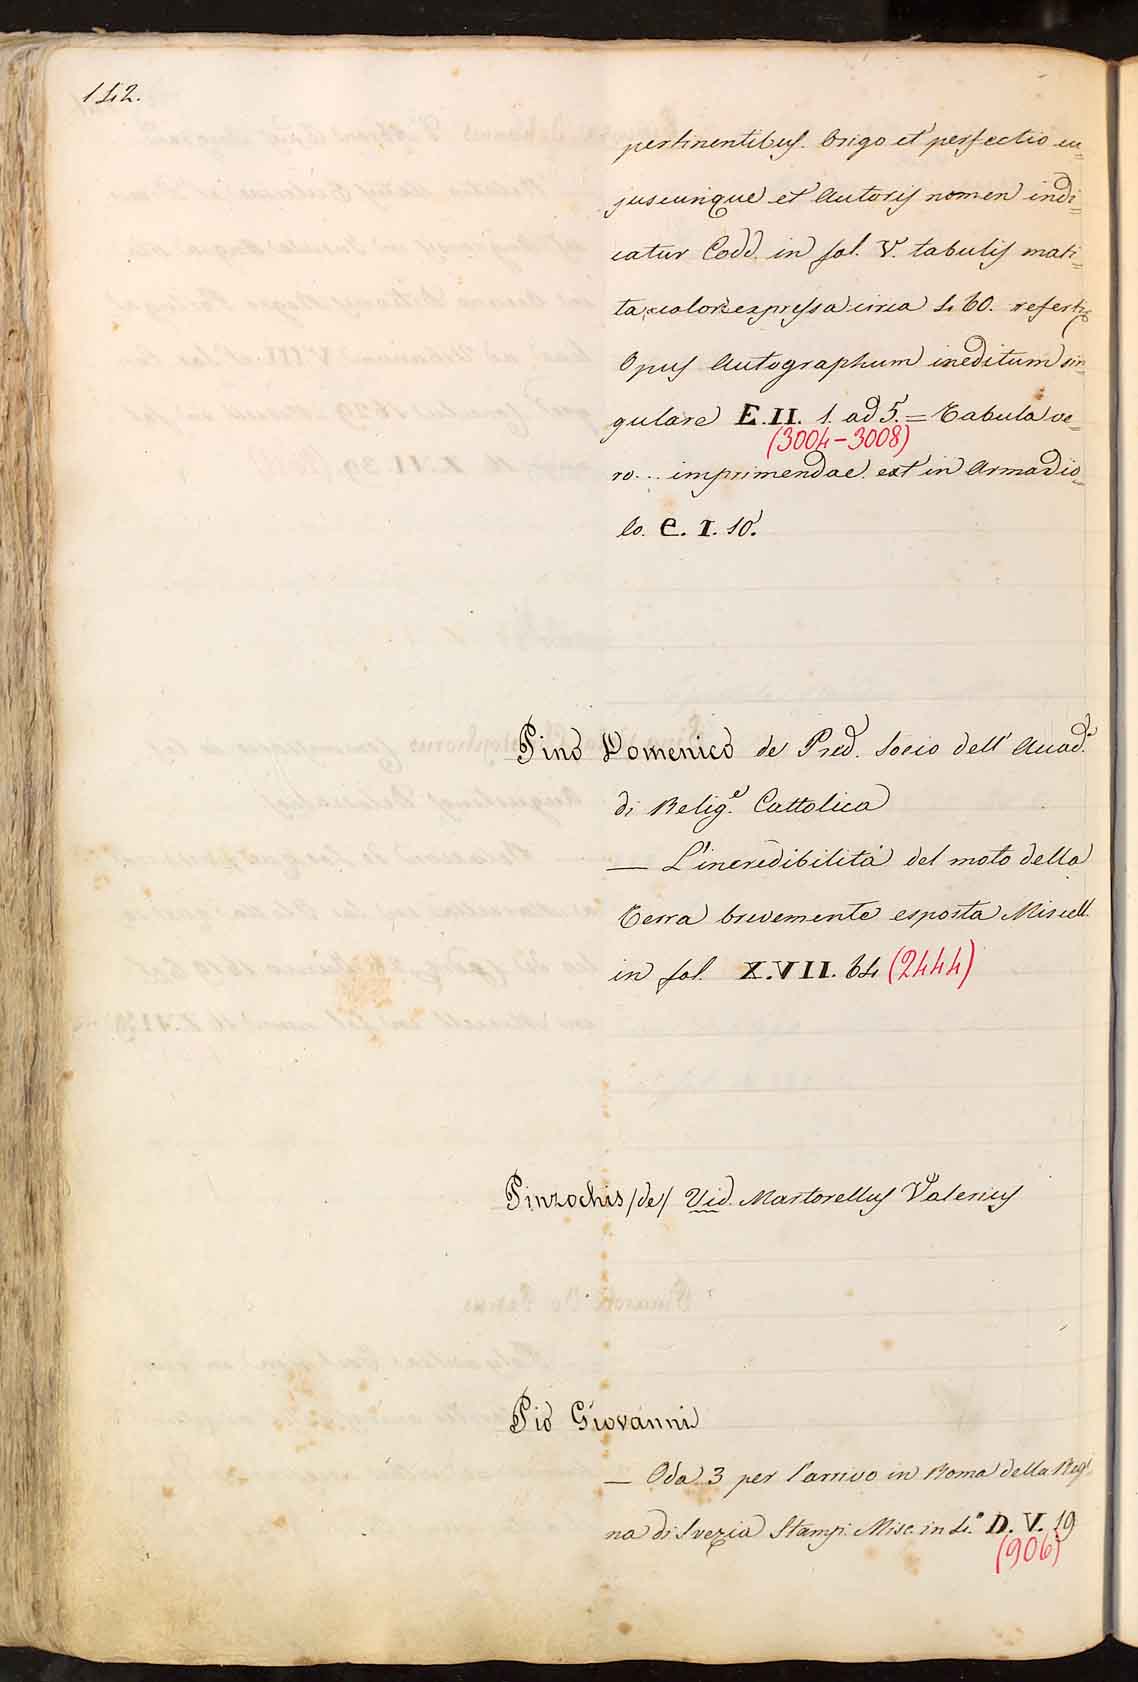 142.
pertinentibus. Origo et perfectio cu=
juscunque et Autoris nomen indi=
catur Codd. in fol. V. tabulis mati=
ta, colore expressa circa 460. refertis
Opus Autographum ineditum sin
gulare E.II. 1. ad 5. = Tabula ve=
(3004-3008)
ro... imprimendae ext in Armadio=
lo. C. I. 10.
Pino Domenico de' Pred. Socio dell' Accad.a
di Relig.e Cattolica
— L'incredibilità del moto della
Terra brevemente esposta Miscell.
in fol. X.VII. 64 (2444)
Pinzochis /de/ Vid. Martorellus Valerius
Pio Giovanni
— Oda 3 per l'arrivo in Roma della Regi
na di Svezia Stamp. Misc. in 4.° D. V. 19
(906)